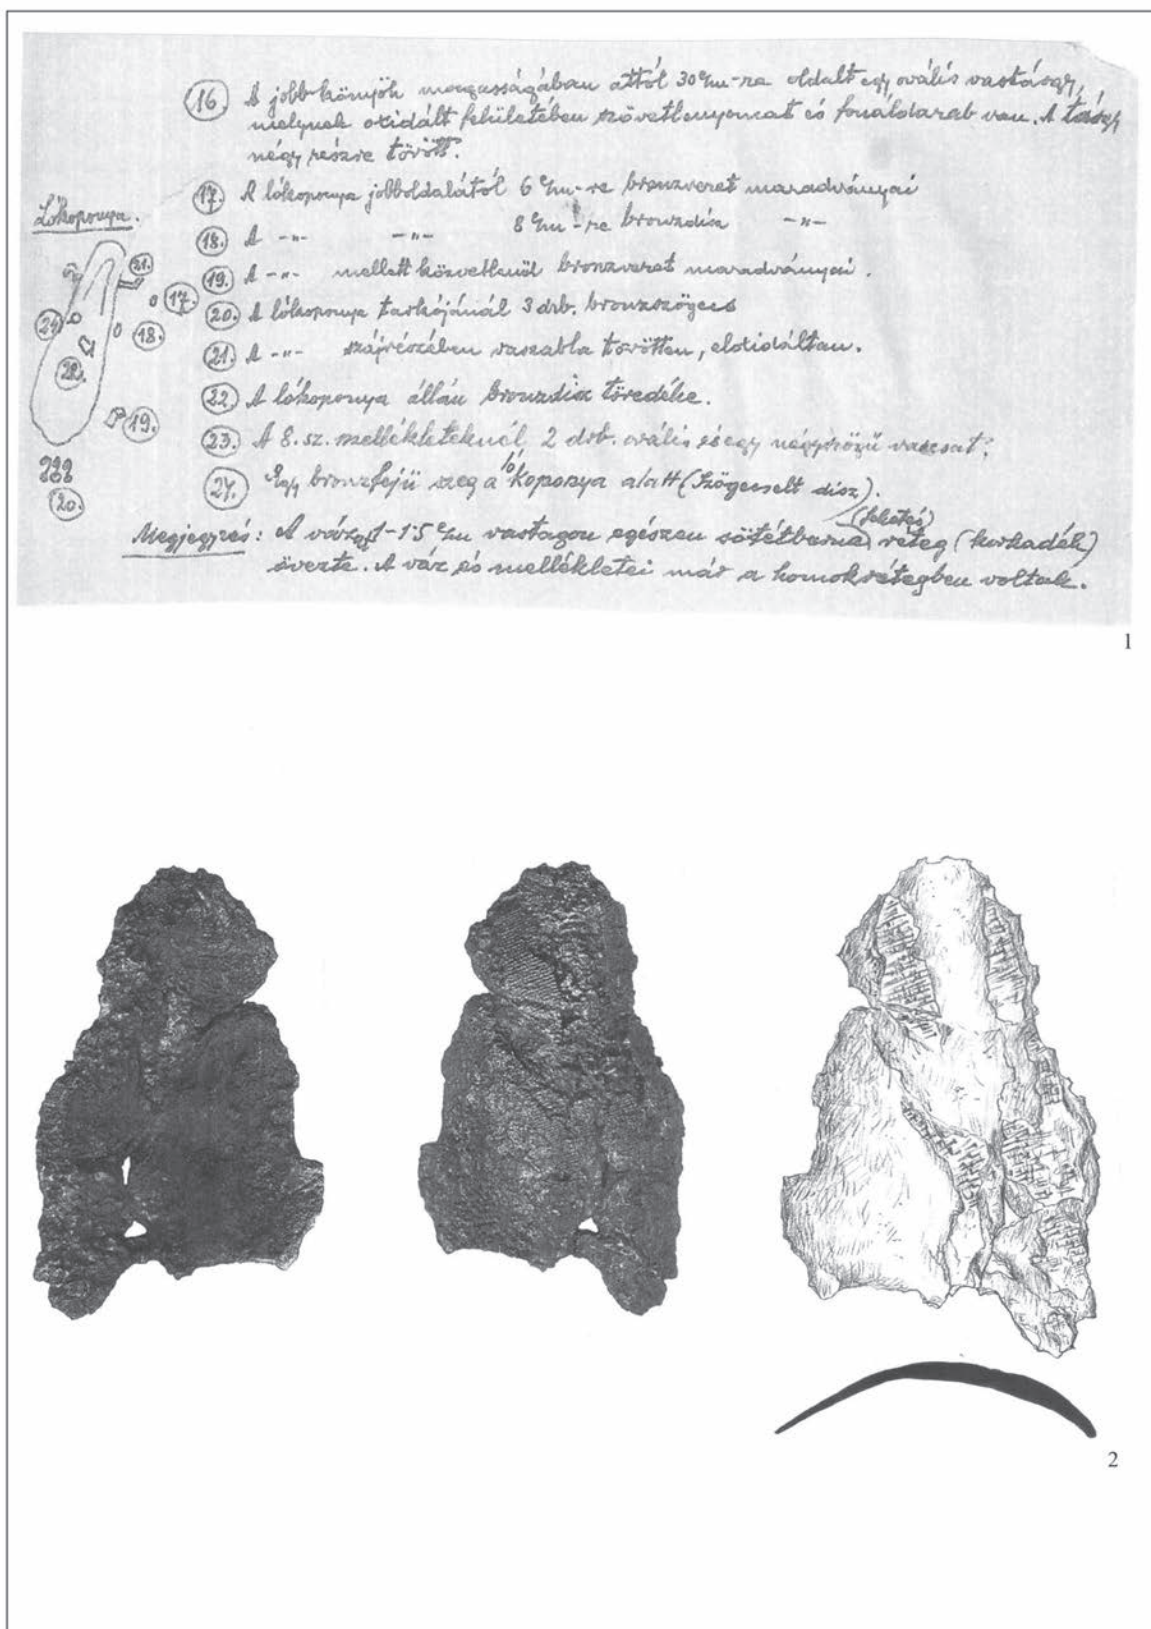 16. A jobb könyök magasságában attól 30 c/m-re oldalt egy ovális vastárgy,
melynek oxidált felületében szövetlenyomat és fonáldarab van. A tárgy
négy részre törött.
Lókoponya.
17. A lókoponya jobboldalától 6 c/m-re bronzveret maradványai
18. A -„- -„- 8 c/m-re bronzdisz -„-
19. A -„- mellett közvetlenül bronzveret maradványai.
20. A lókoponya tarkójánál 3 drb. bronzszögecs
21. A -„- szájrészében vaszabla törötten, eloxidáltan.
22. A lókoponya állán bronzdisz töredéke.
23. A 8. sz. mellékleteknél 2 drb. ovális és egy négyszögű vascsat.
24. Egy bronzfejű szeg a ló koponya alatt (Szögecselt disz).
Megjegyzés: A vázat 1-1.5 c/m vastagon egészen sötétbarna (feketés) réteg (korhadék)
övezte. A váz és mellékletei már a homokrétegben voltak.
21.
17.
24.
18.
22.
19.
20.
1
2